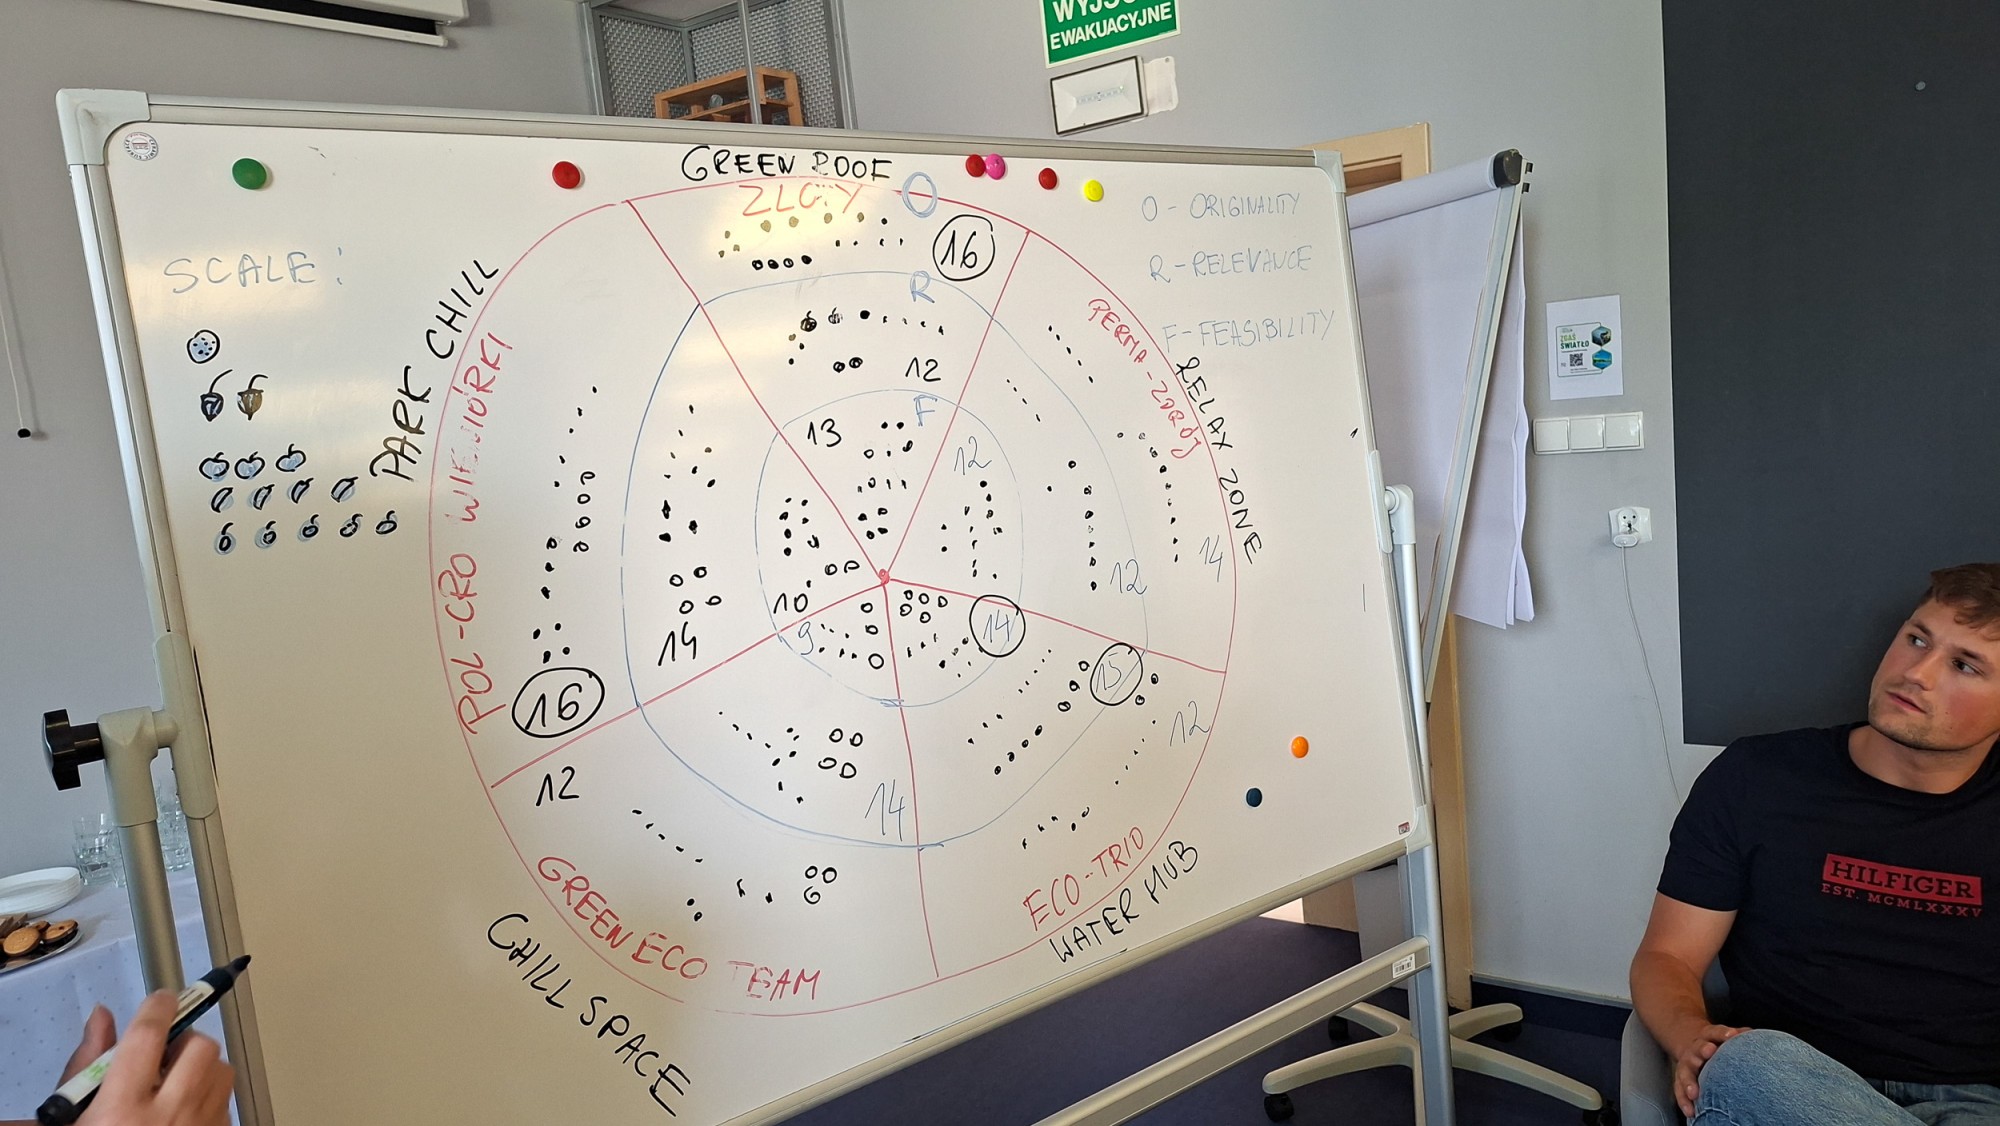 WYJŚCIE
EWAKUACYJNE
GREEN ROOF
ZŁOTY
O
O - ORIGINALITY
R - RELEVANCE
F - FEASIBILITY
SCALE:
16
R
12
F
13
PARK CHILL
POL-CRO WIEWIÓRKI
16
14
10
PERMA-ZDRÓJ
RELAX ZONE
12
12
14
9
14
12
GREEN ECO TEAM
CHILL SPACE
14
15
12
ECO-TRIO
WATER HUB
ZGAŚ
ŚWIATŁO
HILFIGER
EST. MCMLXXXV